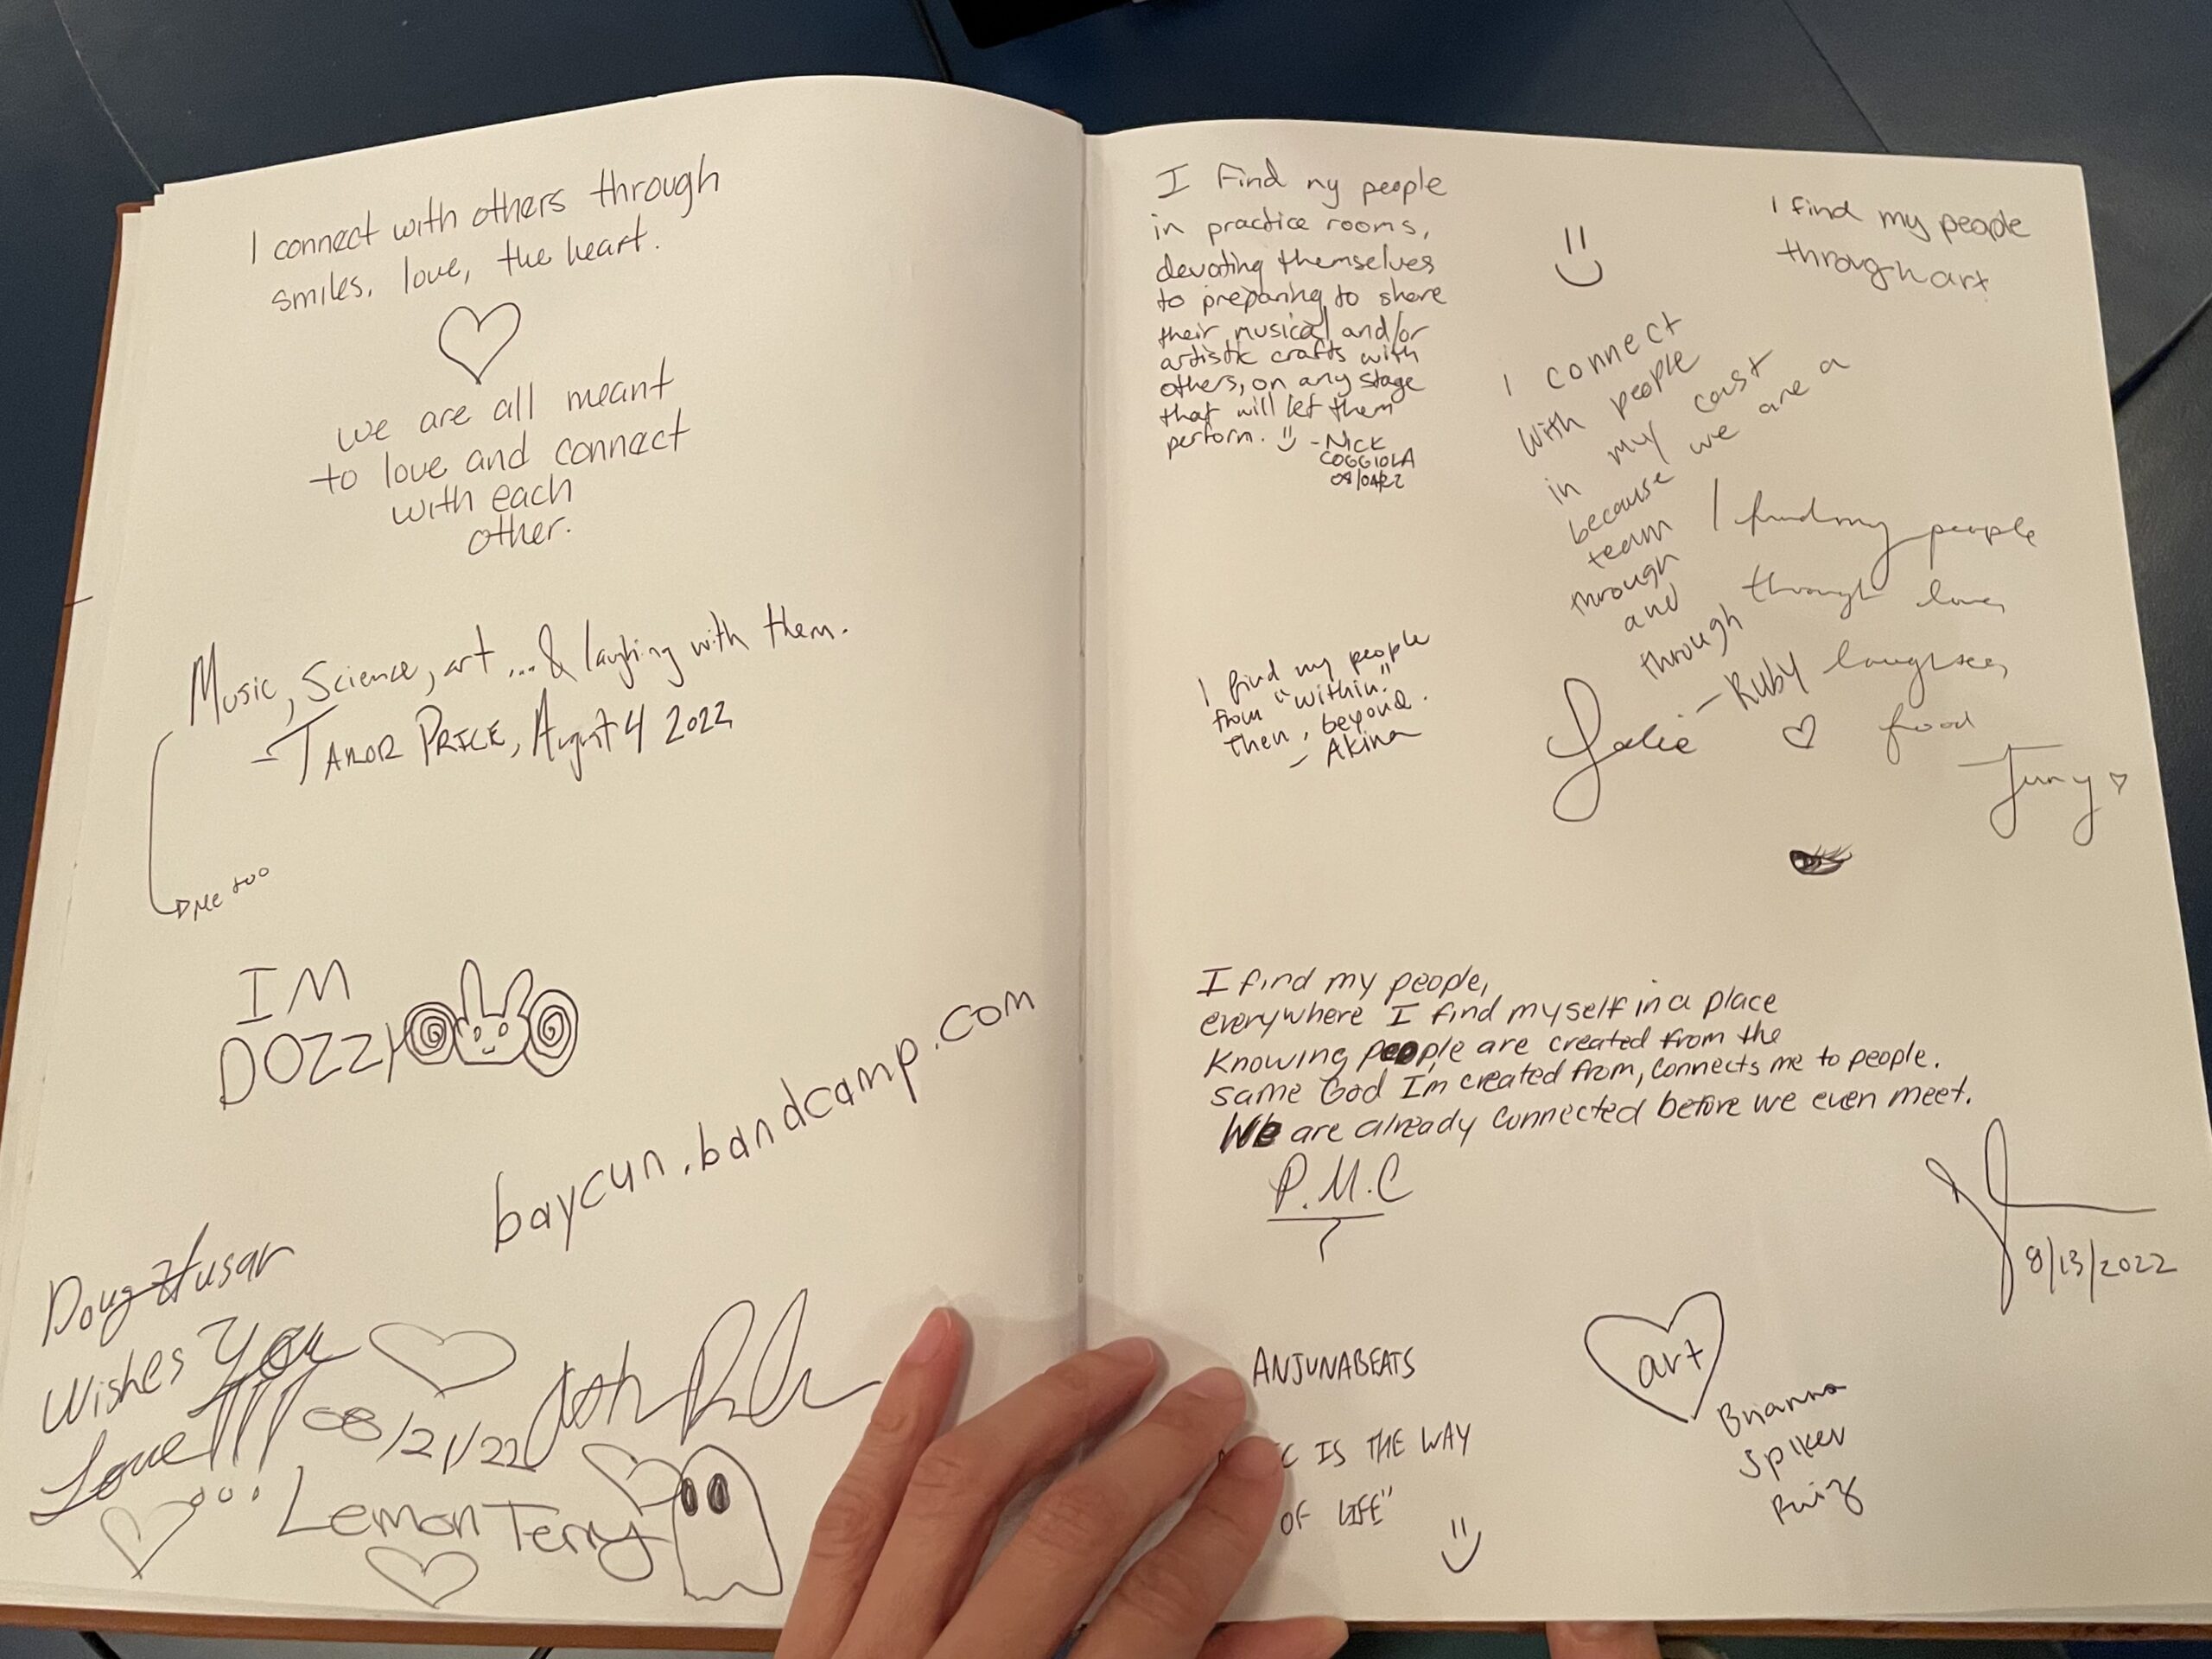 I connect with others through
smiles, love, the heart.
we are all meant
to love and connect
with each
other.
Music, Science, art ... & laughing with them.
- PRICE, August 4 2022
Me too
IM
DOZZY
baycun.bandcamp.com
Doug Husar
Wishes You
Love!!!
08/21/22
Lemon Terry
I Find my people
in practice rooms,
devoting themselves
to preparing to share
their musical and/or
artistic crafts with
others, on any stage
that will let them
perform. - NICK
COGGIOLA
I find my people
through art
I connect
with people
in my cast
because we are a
team
through
and
through
- Ruby
I find my people
through love,
food
I find my people
from "within."
Then, beyond.
- Akina
I find my people,
everywhere I find myself in a place
Knowing people are created from the
same God Im created from, connects me to people.
We are already connected before we even meet.
P.M.C
8/13/2022
ANJUNABEATS
IS THE WAY
OF LIFE"
art
Brianna
Spiker
Ruiz